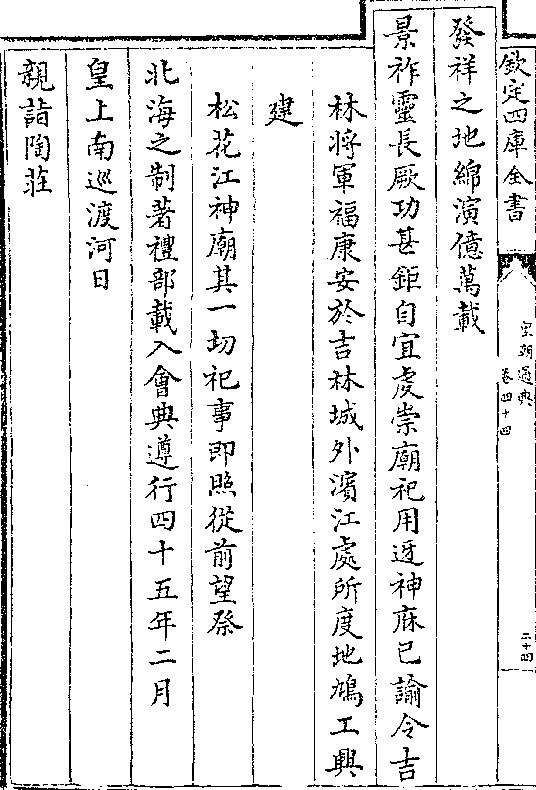 欽定四庫全書
皇朝通典
卷四十四
二十四
發祥之地綿演億萬載
景祚靈長厥功甚鉅自宜虔崇廟祀用迓神庥已諭令吉
林將軍福康安於吉林城外濱江處所度地鳩工興
建
松花江神廟其一切祀事即照從前望祭
北海之制著禮部載入會典遵行四十五年二月
皇上南巡渡河日
親詣陶莊